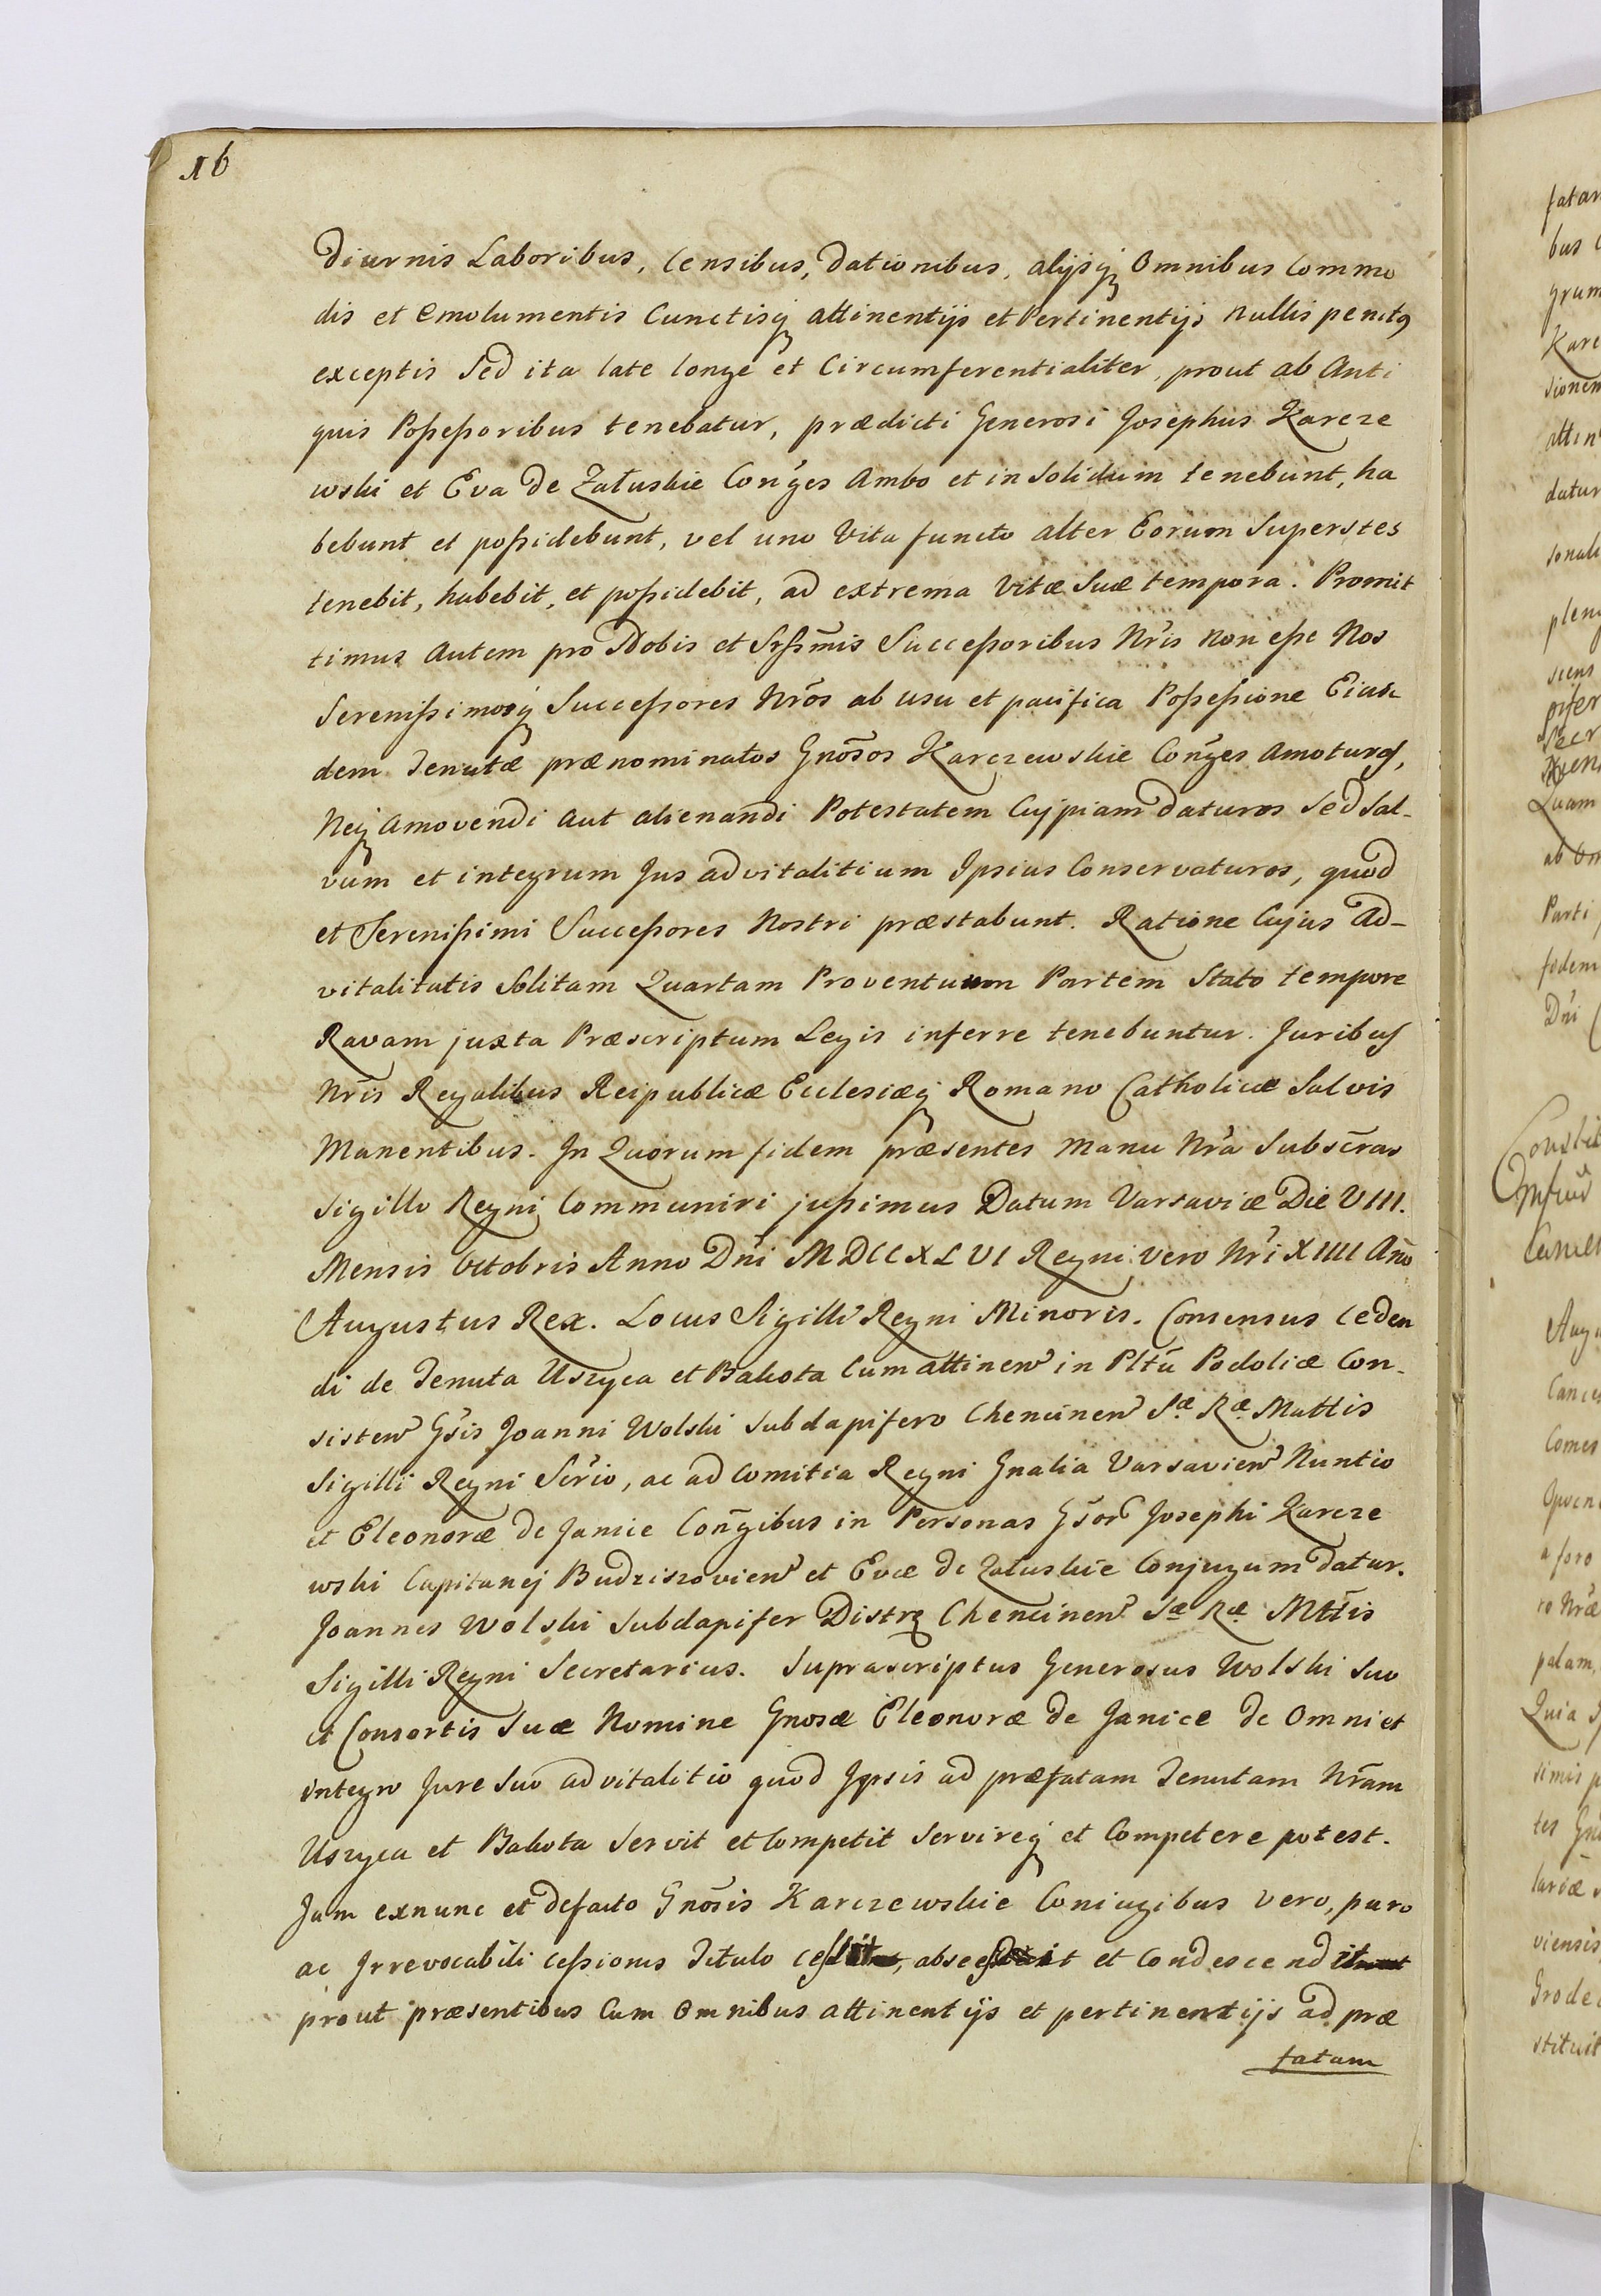 16
diurnis Laboribus, Censibus, dationibus, alijsq; Omnibus Commo
dis et Emolumentis Cunctisq; attinentijs et Pertinentijs nullis penitg
exceptis Sed ita late longe et Circumferentialiter, prout ab Anti
quis Possessoribus tenebatur, prædicti Generosi Josephus Karcze
wski et Eva de Załuskie Conges Ambo et in Solidum tenebunt, ha
bebunt et possidebunt, vel uno Vita functo alter Eorum Superstes
tenebit, habebit, et possidebit, ad extrema Vitæ Suæ tempora. Promit
timus Autem pro Nobis et Srssmis Successoribus Nris non esse Nos
Serenissimosq; Successores Nros ab usu et pacifica Possessione Eius
dem Tenutæ prænominatos Gnosos Karczewskie Conges Amoturos,
Neq; Amovendi Aut alienandi Potestatem Cujpiam daturos Sed Sal-
vum et integrum Jus advitalitium Ipsius Conservaturos, quod
et Serenissimi Successores Nostri præstabunt. Ratione Cujus Ad-
vitalitatis Solitam Quartam Proventuum Partem Stato tempore
Ravam juxta Præscriptum Legis inferre tenebuntur. Juribus
Nris Regalibus Reipublicæ Ecclesiæq; Romano Catholicæ Salvis
Manentibus. In Quorum fidem præsentes Manu Nra Subscras
Sigillo Regni Communiri jussimus Datum Varsaviæ Die VIII.
Mensis Octobris Anno Dni MDCCXLVI Regni vero Nri XIIII Ano
Augustus Rex. Locus Sigilli Regni Minoris. Consensus Ceden
di de Tenuta Uszyca et Bakota Cum attinen in Pltu Podoliæ Con-
sisten Gsis Joanni Wolski Subdapifero Chencinen Sæ Ræ Mattis
Sigilli Regni Scrio, ac ad Comitia Regni Gnalia Varsavien Nuntio
et Eleonoræ de Janice Congibus in Personas Gsor Josephi Karcze
wski Capitanej Budziszovien et Evæ de Załuskie Conjugum datur.
Joannes Wolski Subdapifer Distrq Chencinen Sæ Ræ Mttis
Sigilli Regni Secretarius. Suprascriptus Generosus Wolski Suo
et Consortis Suæ Nomine Gnosæ Eleonoræ de Janice de Omni et
integro Jure Suo advitalitio quod Ipsis ad præfatam Tenutam Nram
Uszyca et Bakota Servit et Competit Servireq; et Competere potest.
Jam exnunc et defacto Gnosis Karczewskie Coniugibus vero, puro
ac Irrevocabili cessionis Titulo cessit, abscessit et Condescendit
prout præsentibus Cum Omnibus attinentijs et pertinentijs ad præ
fatam